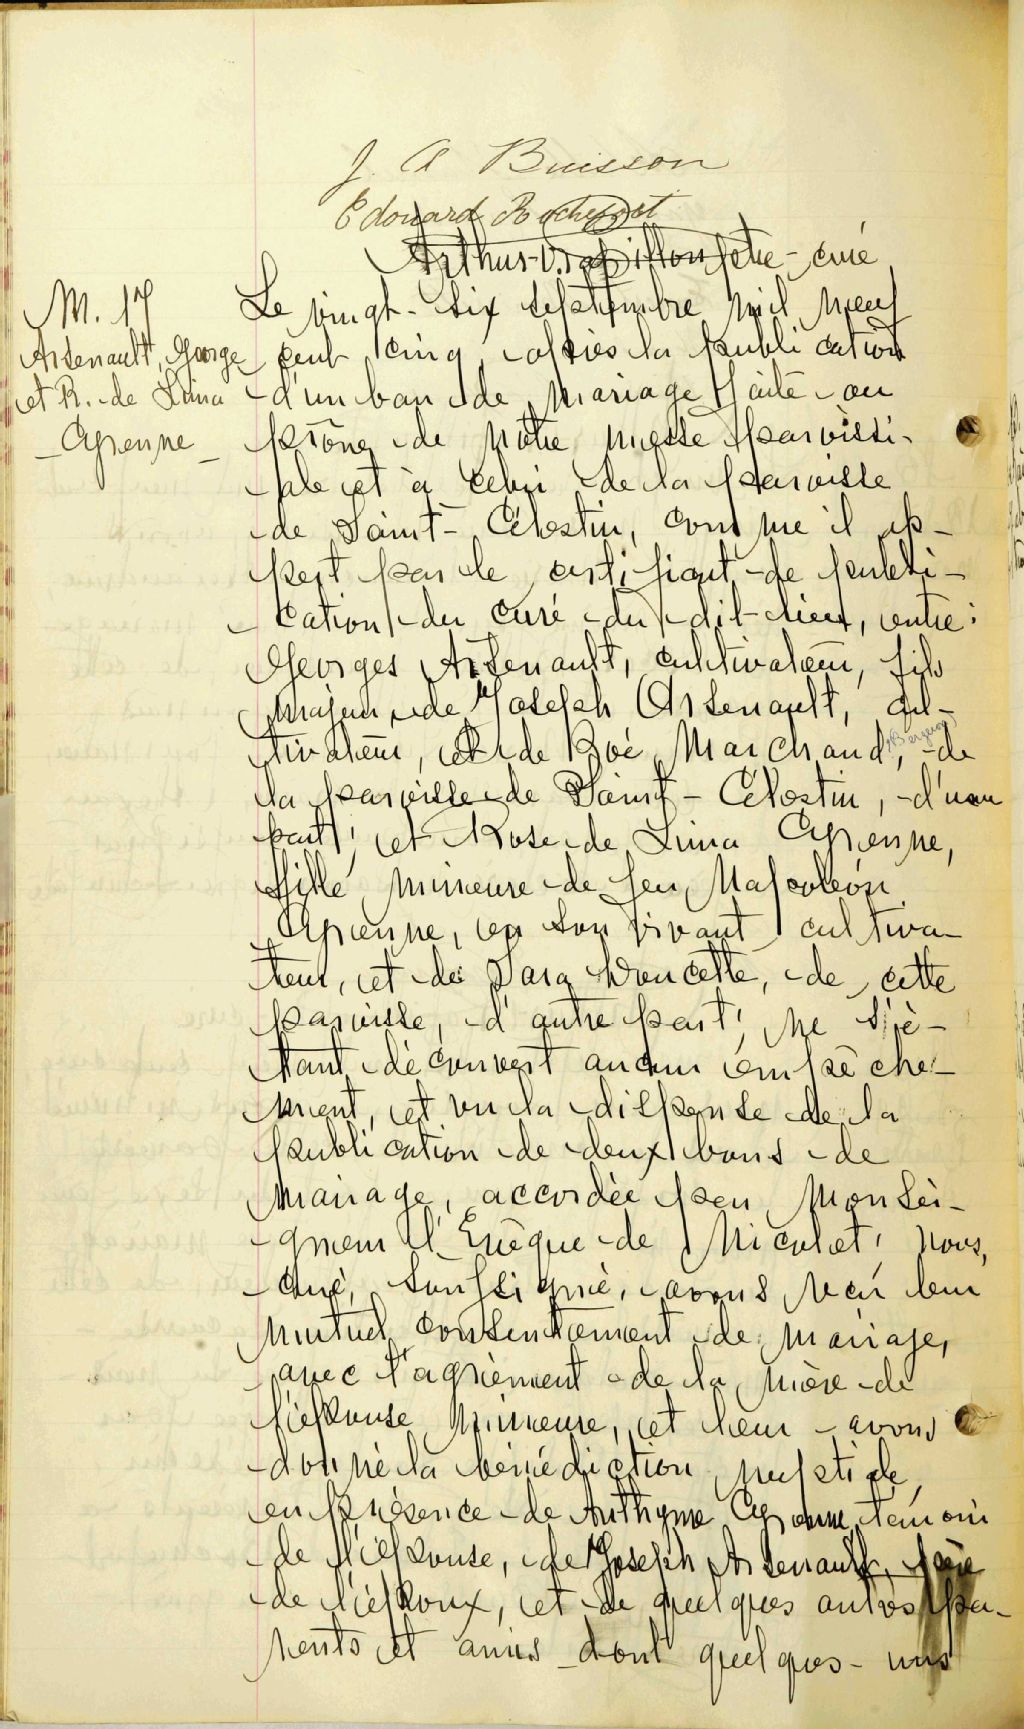 J. A Buisson
Edouard Rochefort
Arthus-V. Papillon ptre-curé
M. 17
Arsenault, George
et R. de Lima
Cyrenne
Le vingt-six septembre mil neuf
cent cinq, après la publication
d'un ban de mariage faite au
prône de notre messe paroissi-
ale et à celui de la paroisse
de Saint-Célestin, comme il ap-
pert par le certificat de publi-
cation du curé du dit lieu, entre:
Georges Arsenault, cultivateur, fils
majeur de Joseph Arsenault, cul-
tivateur, et de Zoé Marchand, (Bergeron) de
la paroisse de Saint-Célestin, d'une
part; et Rose de Lima Cyrenne,
fille mineure de feu Napoléon
Cyrenne, en son vivant cultiva-
teur, et de Sara Doucette, de cette
paroisse, d'autre part; ne s'é-
tant découvert aucun empêche-
ment, et vu la dispense de la
publication de deux bans de
mariage, accordée par Monsei-
gneur l'Evêque de Nicolet; nous,
curé, soussigné, avons reçu leur
mutuel consentement de mariage,
avec l'agrément de la mère de
l'épouse mineure, et leur avons
donné la bénédiction nuptiale,
en présence de Anthyme Cyrenne, témoin
de l'épouse, de Joseph Arsenault, père
de l'époux, et de quelques autres pa-
rents et amis dont quelques-uns